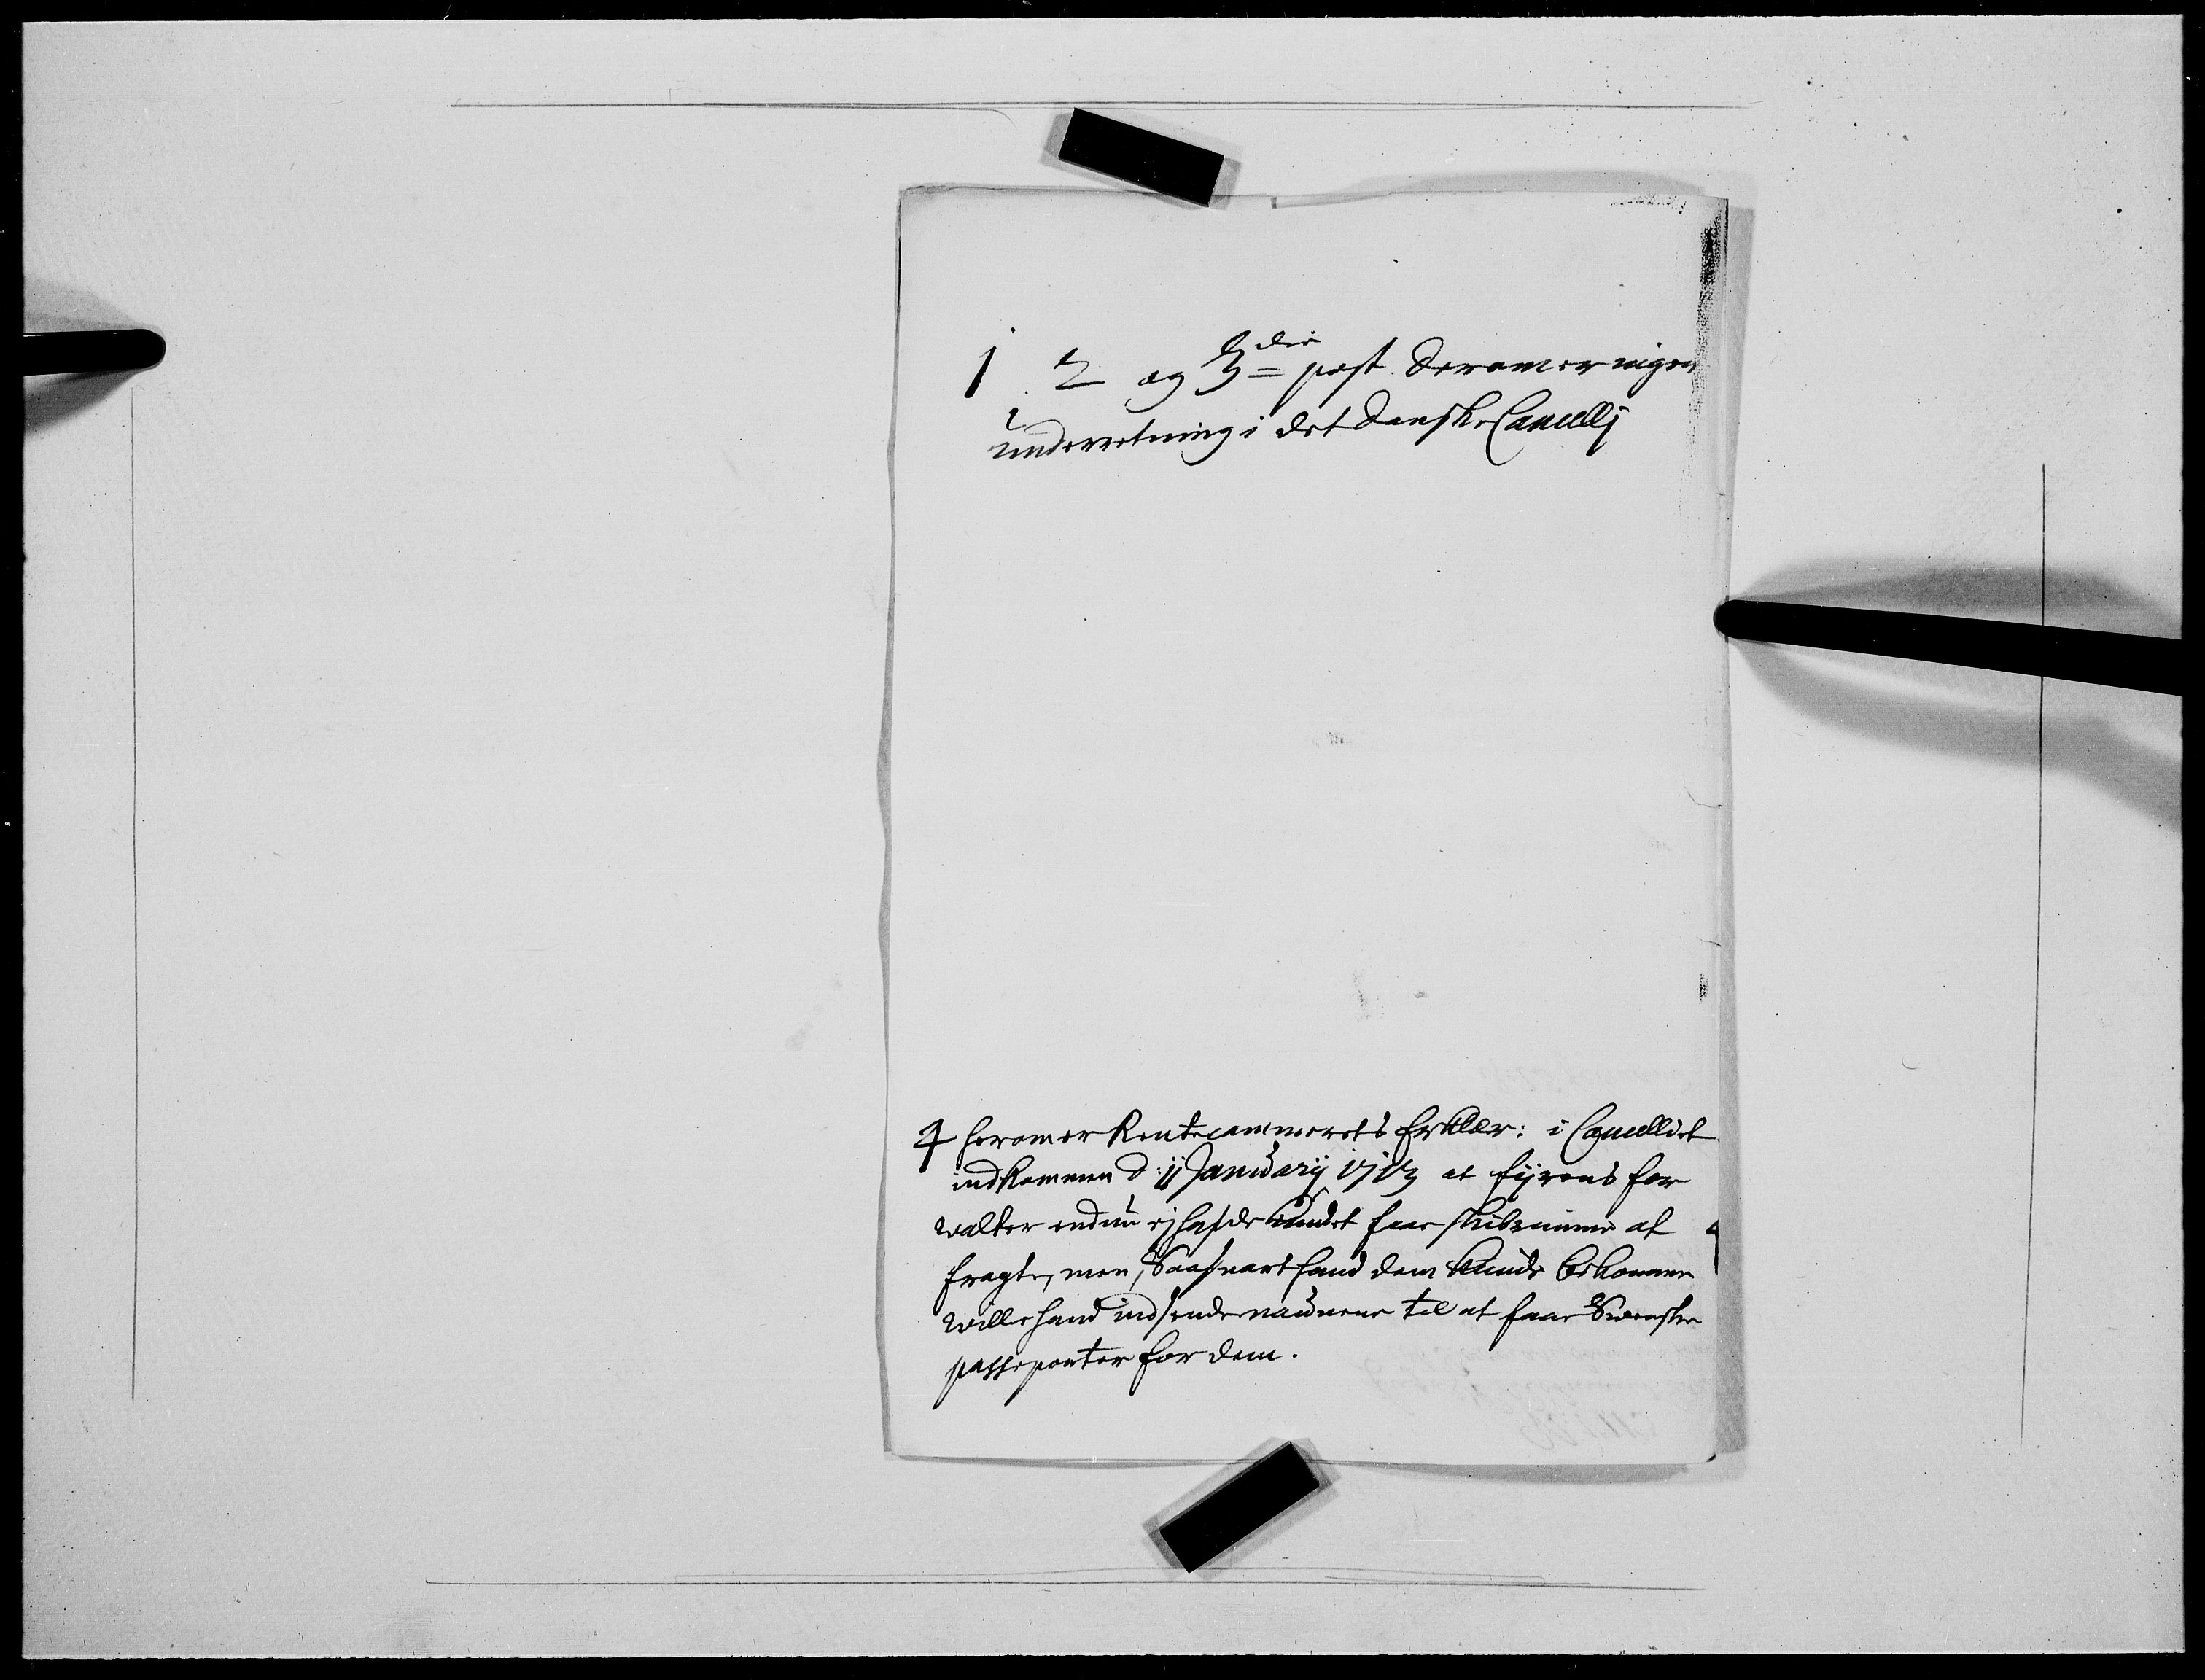 1 2 og 3die post derom er ingen
underretning i det danske Cancellj
4 herom er Rentecammerets Erklær: i Cancelliet
indkommen d: 11 Januarij 1713 at fyrens for
walter endnu ej hafde kundet faae skibe at
fragte, men, saasnart hand dem kunde bekomme
wille hand indsende naunene til at faae Swenske
passeporter for dem.